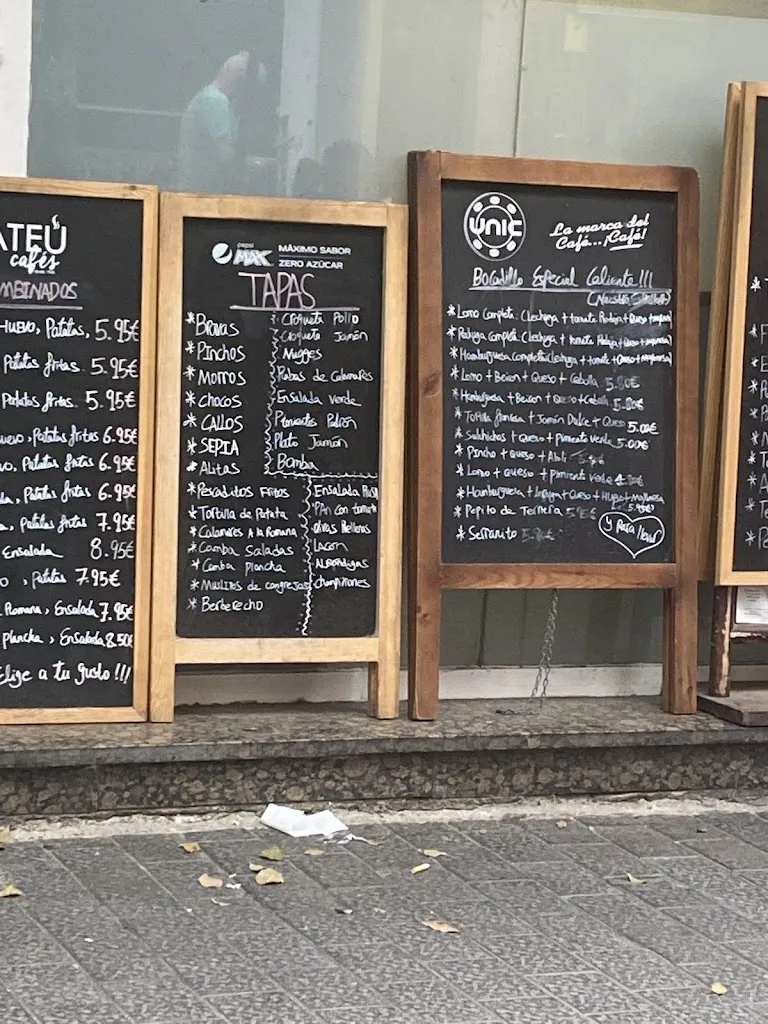 ATEÚ
cafés
MBINADOS
Huevo, Patatas, 5.95€
Patatas fritas 5.95€
Patatas fritas 5.95€
uevo, Patatas fritas 6.95€
vo, Patatas fritas 6.95€
a, Patatas fritas 6.95€
a, Patatas fritas 7.95€
Ensalada 8.95€
o, Patatas 7.95€
Romana, Ensalada 7.95€
Plancha, Ensalada 8.50€
Elige a tu gusto!!!
pepsi MAX MÁXIMO SABOR
ZERO AZÚCAR
TAPAS
* Bravas
* Pinchos
* Morros
* chocos
* CALLOS
* SEPIA
* Alitas
* Pescaditos Fritos
* Tortilla de Patata
* Calamares A la Romana
* Gamba Saladas
* Gamba plancha
* Muslitos de cangrejos
* Berberecho
Croqueta Pollo
Croqueta Jamón
Nugges
Rabas de Calamares
Ensalada verde
Pimientos Padrón
Plato Jamón
Bomba
Ensalada Rusa
PAn con tomate
olivas Rellenas
Lacon
Albondigas
champiñones
UNIC
La marca del
Café... ¡Café!
Bocadillo Especial Caliente!!!
* Lomo Completa: (Lechuga + tomate
* Pechuga Completa: (Lechuga + tomate
* Hamburguesa Completa: (Lechuga + tomate
* Lomo + Beicon + Queso + Cebolla
* Hamburguesa + Beicon + Queso + Cebolla
* Tortilla francesa + Jamón Dulce + Queso 5.00€
* Salchichas + Queso + Pimiento verde 5.00€
* Pincho + Queso + Alioli
* Lomo + queso + pimiento verde
* Hamburguesa + + Queso + Huevo + Mayonesa
* Pepito de Ternera
* Serranito
y Para llevar